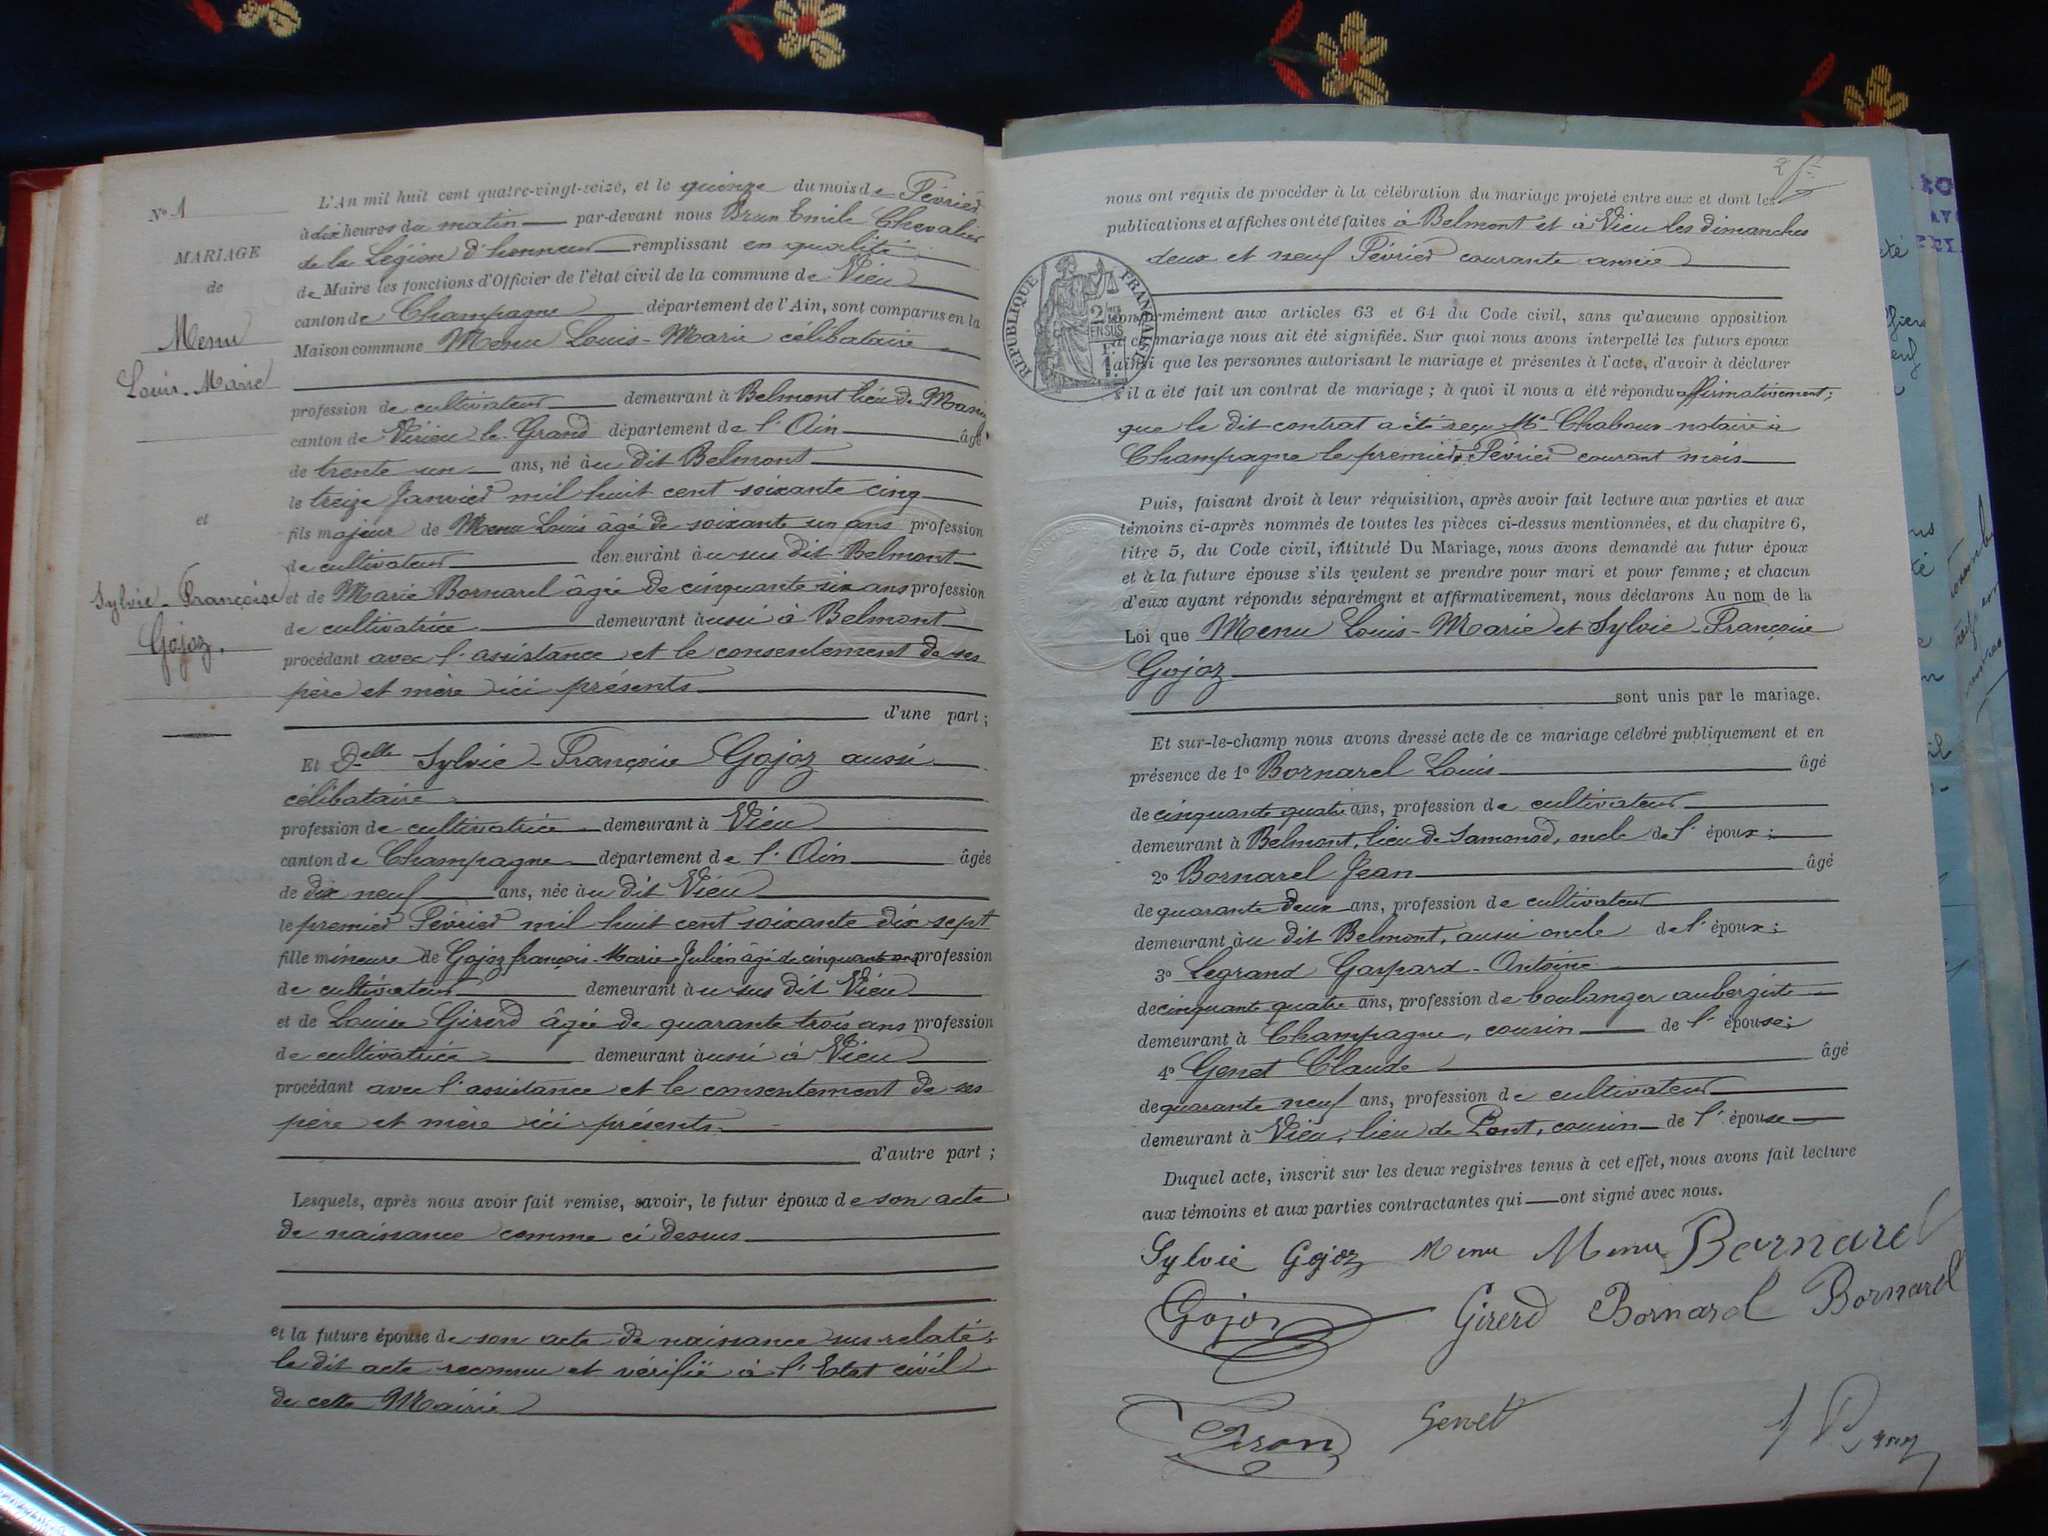 N° 1
MARIAGE
de
Menu
Louis-Marie
et
Sylvie-Françoise
Gojoz.
L'An mil huit cent quatre-vingt-seize, et le quinze du mois de Février
à dix heures du matin par-devant nous Brun Emile Chevalier
de la Légion d'honneur remplissant en qualité
de Maire les fonctions d'Officier de l'état civil de la commune de Vieu
canton de Champagne département de l'Ain, sont comparus en la
Maison commune Menu Louis-Marie célibataire
profession de cultivateur demeurant à Belmont lieu de
canton de Virieu le Grand département de l'Ain âgé
de trente un ans, né àu dit Belmont
le treize Janvier mil huit cent soixante cinq
fils majeur de Menu Louis âgé de soixante un ans profession
de cultivateur demeurant àu sus dit Belmont
et de Marie Bornarel âgée de cinquante six ans profession
de cultivatrice demeurant àussi à Belmont
procédant avec l'assistance et le consentement de ses
père et mère ici présents
d'une part ;
Et Delle Sylvie-Françoise Gojoz aussi
célibataire
profession de cultivatrice demeurant à Vieu
canton de Champagne département de l'Ain âgée
de dix neuf ans, née àu dit Vieu
le premier Février mil huit cent soixante dix sept
fille mineure de Gojoz françois-Marie-Julien âgé de cinquante ans profession
de cultivateur demeurant àu sus dit Vieu
et de Louise Girerd âgée de quarante trois ans profession
de cultivatrice demeurant àussi à Vieu
procédant avec l'assistance et le consentement de ses
père et mère ici présents.
d'autre part ;
Lesquels, après nous avoir fait remise, savoir, le futur époux de son acte
de naissance comme ci dessus
et la future épouse de son acte de naissance sus relaté;
le dit acte reconnu et vérifié à l'Etat civil
de cette Mairie
2
nous ont requis de procéder à la célébration du mariage projeté entre eux et dont les
publications et affiches ont été faites à Belmont et à Vieu les dimanches
deux et neuf Février courante année
RÉPUBLIQUE FRANÇAISE
conformément aux articles 63 et 64 du Code civil, sans qu'aucune opposition
à ce mariage nous ait été signifiée. Sur quoi nous avons interpellé les futurs époux
ainsi que les personnes autorisant le mariage et présentes à l'acte, d'avoir à déclarer
s'il a été fait un contrat de mariage ; à quoi il nous a été répondu affirmativement;
que le dit contrat a été reçu Me Chaboux notaire à
Champagne le premier Février courant mois
Puis, faisant droit à leur réquisition, après avoir fait lecture aux parties et aux
témoins ci-après nommés de toutes les pièces ci-dessus mentionnées, et du chapitre 6,
titre 5, du Code civil, intitulé Du Mariage, nous avons demandé au futur époux
et à la future épouse s'ils veulent se prendre pour mari et pour femme ; et chacun
d'eux ayant répondu séparément et affirmativement, nous déclarons Au nom de la
Loi que Menu Louis-Marie et Sylvie-Françoise
Gojoz
sont unis par le mariage.
Et sur-le-champ nous avons dressé acte de ce mariage célébré publiquement et en
présence de 1° Bornarel Louis âgé
de cinquante quatre ans, profession de cultivateur
demeurant à Belmont, lieu de Samonod, oncle de l'époux;
2° Bornarel Jean âgé
de quarante deux ans, profession de cultivateur
demeurant àu dit Belmont, aussi oncle de l'époux;
3° Legrand Gaspard-Antoine
de cinquante quatre ans, profession de boulanger aubergiste
demeurant à Champagne, cousin de l'épouse;
4° Genet Claude âgé
de quarante neuf ans, profession de cultivateur
demeurant à Vieu, lieu de Pont, cousin de l'épouse
Duquel acte, inscrit sur les deux registres tenus à cet effet, nous avons fait lecture
aux témoins et aux parties contractantes qui ont signé avec nous.
Sylvie Gojoz Menu Menu Bornarel
Gojoz Girerd Bornarel Bornarel
Genet